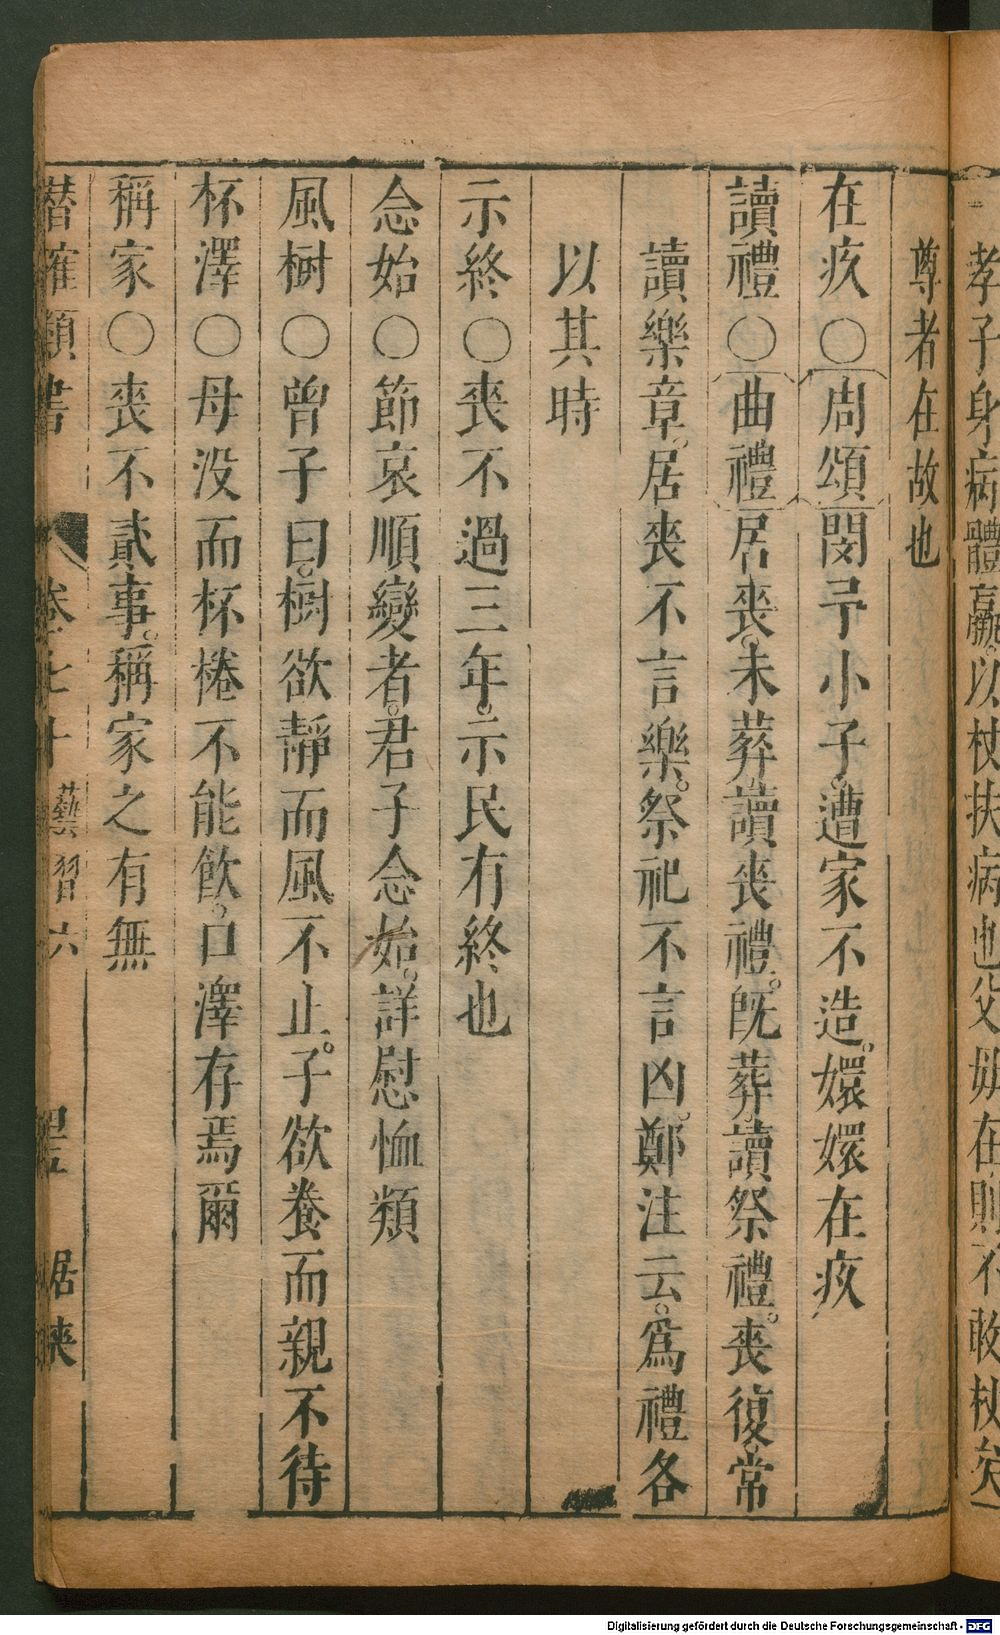 孝子身病體羸以杖扶病也父母在則不敢杖矣
尊者在故也
在疚○周頌閔予小子遭家不造嬛嬛在疚
讀禮○曲禮居喪未葬讀喪禮既葬讀祭禮喪復常
讀樂章居喪不言樂祭祀不言凶鄭注云爲禮各
以其時
示終○喪不過三年示民有終也
念始○節哀順變者君子念始詳慰恤類
風樹○曾子曰樹欲靜而風不止子欲養而親不待
杯澤○母没而杯棬不能飲口澤存焉爾
稱家○喪不貳事稱家之有無
潛確類書 卷七十 藝習六
Digitalisierung gefördert durch die Deutsche Forschungsgemeinschaft - DFG